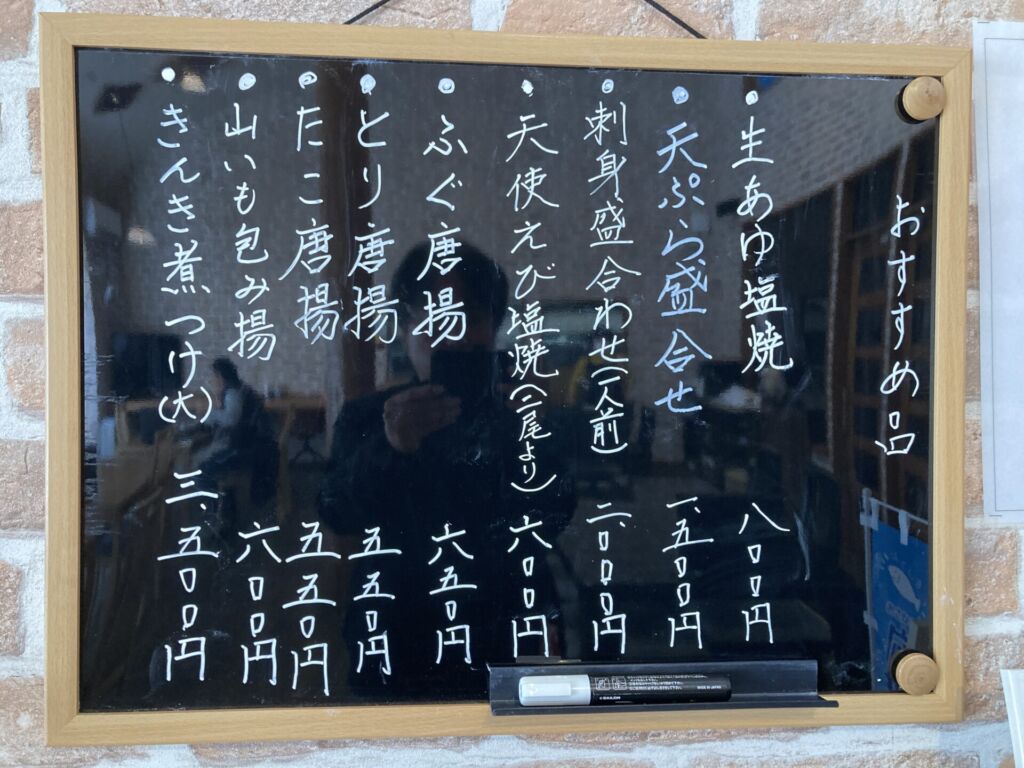 おすすめ品
・生あゆ塩焼 八〇〇円
・天ぷら盛合せ 一、五〇〇円
・刺身盛合わせ(一人前) 二、〇〇〇円
・天使えび塩焼(二尾より) 六〇〇円
・ふぐ唐揚 六五〇円
・とり唐揚 五五〇円
・たこ唐揚 五五〇円
・山いも包み揚 六〇〇円
・きんき煮つけ(大) 三、五〇〇円
MADE IN JAPAN